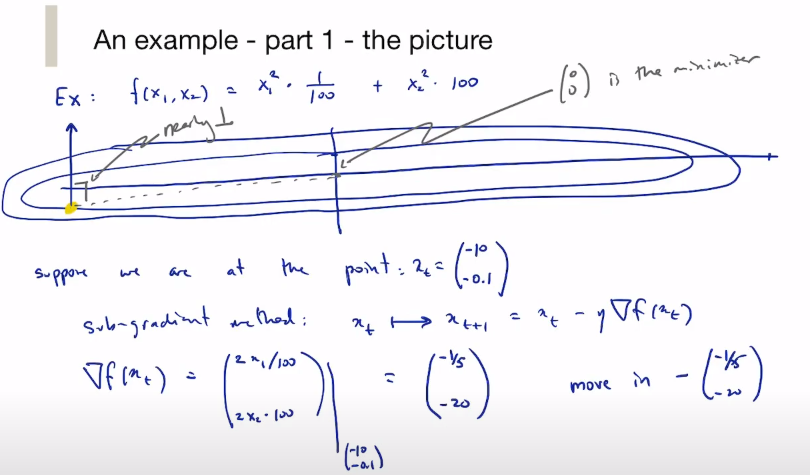 An example - part 1 - the picture
Ex : f(x₁, x₂) = x₁² · 1/100 + x₂² · 100
(0 0) is the minimizer
nearly ⊥
suppose we are at the point : x_t = (-10 -0.1)
sub-gradient method : x_t ↦ x_{t+1} = x_t - η ∇f(x_t)
∇f(x_t) = (2x₁/100 2x₂·100) |_(-10 -0.1) = (-1/5 -20) move in - (-1/5 -20)